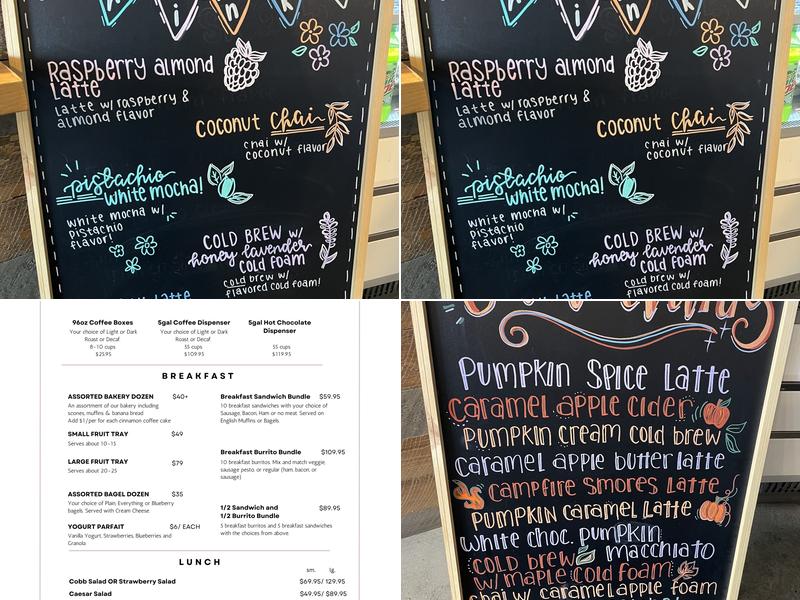 Raspberry almond
Latte
Latte w/ raspberry &
almond flavor
coconut chai
chai w/
coconut flavor
pistachio
white mocha!
white mocha w/
pistachio
flavor!
COLD BREW w/
honey lavender
COLD FOAM
cold brew w/
flavored cold foam!
Raspberry almond
Latte
Latte w/ raspberry &
almond flavor
coconut chai
chai w/
coconut flavor
pistachio
white mocha!
white mocha w/
pistachio
flavor!
COLD BREW w/
honey lavender
COLD FOAM
cold brew w/
flavored cold foam!
96oz Coffee Boxes
Your choice of Light or Dark
Roast or Decaf
8-10 cups
$25.95
5gal Coffee Dispenser
Your choice of Light or Dark
Roast or Decaf
55 cups
$109.95
5gal Hot Chocolate
Dispenser
55 cups
$119.95
BREAKFAST
ASSORTED BAKERY DOZEN $40+
An assortment of our bakery including
scones, muffins & banana bread
Add $1/per for each cinnamon coffee cake
SMALL FRUIT TRAY $49
Serves about 10-15
LARGE FRUIT TRAY $79
Serves about 20-25
ASSORTED BAGEL DOZEN $35
Your choice of Plain, Everything or Blueberry
bagels. Served with Cream Cheese.
YOGURT PARFAIT $6/ EACH
Vanilla Yogurt, Strawberries, Blueberries and
Granola
Breakfast Sandwich Bundle $59.95
10 breakfast sandwiches with your choice of
Sausage, Bacon, Ham or no meat. Served on
English Muffins or Bagels.
Breakfast Burrito Bundle $109.95
10 breakfast burritos. Mix and match veggie,
sausage pesto, or regular (ham, bacon, or
sausage)
1/2 Sandwich and
1/2 Burrito Bundle $89.95
5 breakfast burritos and 5 breakfast sandwiches
with the choices from above.
LUNCH
sm. lg.
Cobb Salad OR Strawberry Salad $69.95/ 129.95
Caesar Salad $49.95/ $89.95
PUMPKIN SPICE LATTE
caramel apple cider
PUMPKIN cream cold brew
caramel apple butter latte
CAMPFIRE SMORES LATTE
PUMPKIN CARAMEL LATTE
white choc. pumpkin
macchiato
COLD BREW
w/ MAPLE COLD FOAM
chai w/ caramel apple foam